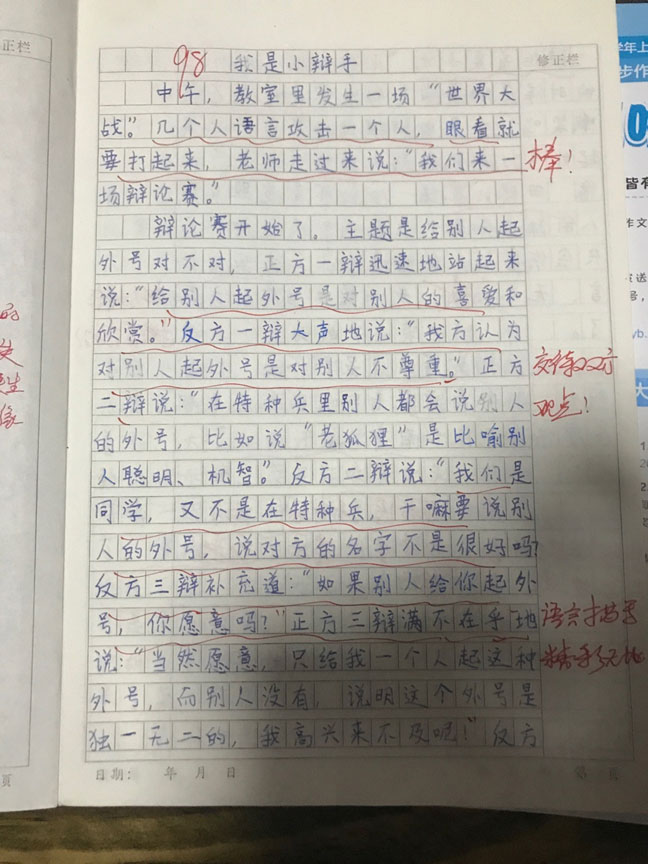 正栏
98
我是小辩手
修正栏
中午，教室里发生一场“世界大
战”。几个人语言攻击一个人，眼看就
要打起来，老师走过来说：“我们来一
棒！
场辩论赛。”
辩论赛开始了。主题是给别人起
外号对不对，正方一辩迅速地站起来
说：“给别人起外号是对别人的喜爱和
欣赏。”反方一辩大声地说：“我方认为
对别人起外号是对别人不尊重。”正方
交待双方
二辩说：“在特种兵里别人都会说别人
观点！
的外号，比如说“老狐狸”是比喻别
人聪明、机智。”反方二辩说：“我们是
同学，又不是在特种兵，干嘛要说别
人的外号，说对方的名字不是很好吗？
反方三辩补充道：“如果别人给你起外
号，你愿意吗？”正方三辩满不在乎地
语言描写
说：“当然愿意，只给我一个人起这种
外号，而别人没有，说明这个外号是
独一无二的，我高兴来不及呢！”反方
日期：　年　月　日
第　页
页
学年上
步作
皆有
作文
发送
号，
大
1
2